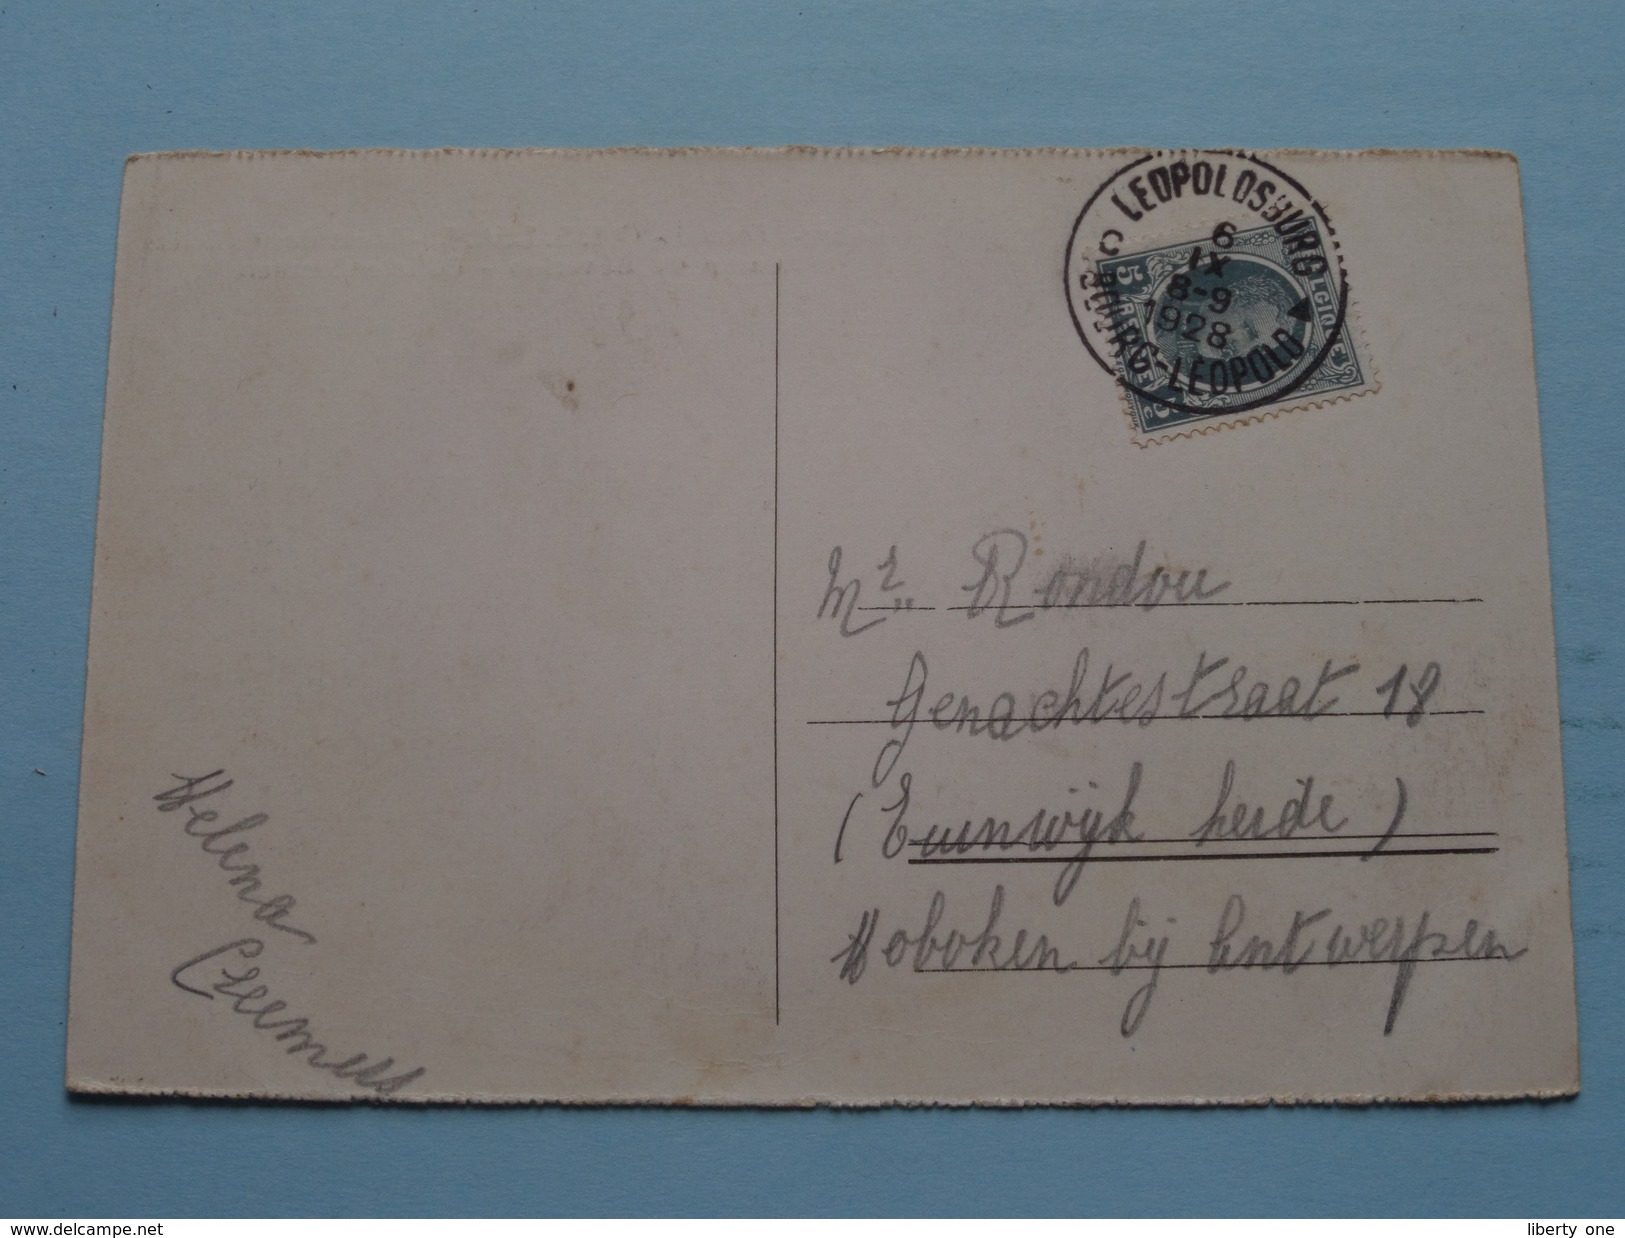 LEOPOLDSBURG
C
6
IX
8-9
1928
BOURG-LEOPOLD
5
Mr. Rondou
Genachtestraat 18
(Euinwijk heide)
Hoboken bij Antwerpen
Helena
Ceemers
www.delcampe.net
liberty_one